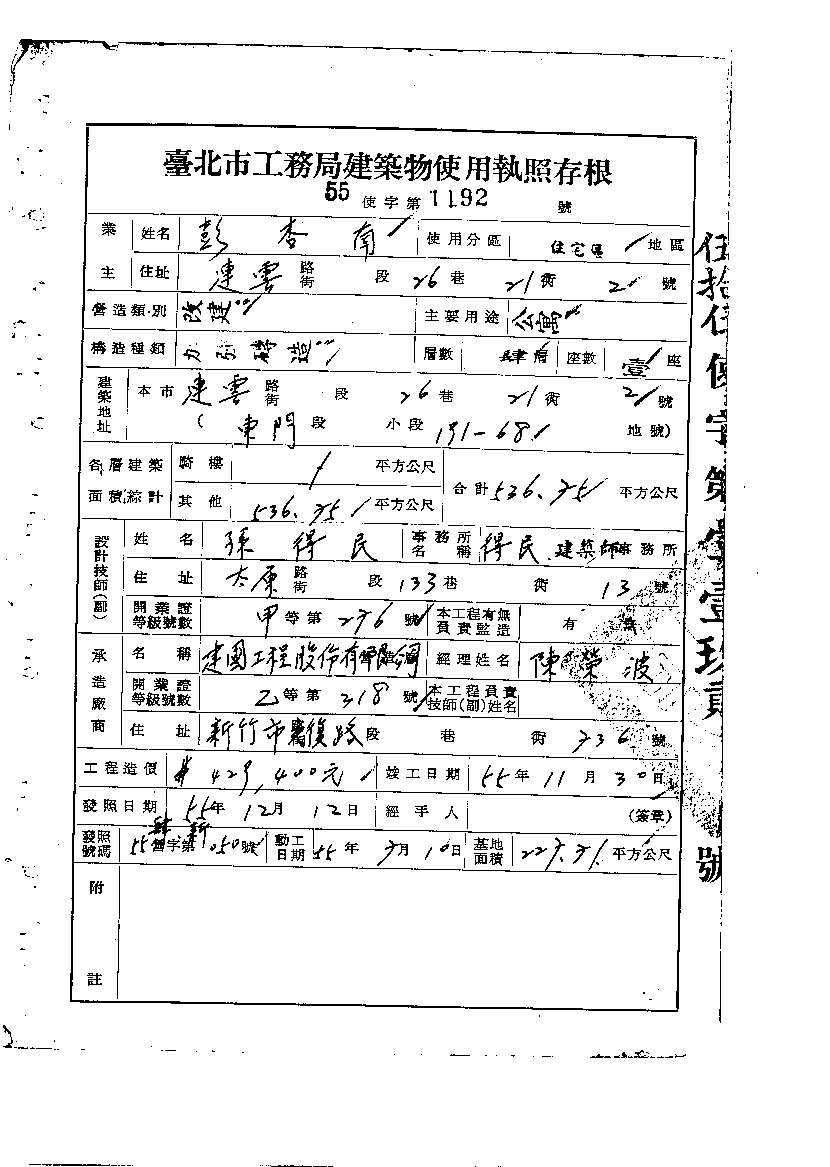 臺北市工務局建築物使用執照存根
55 使字第 1192 號
業主 姓名 彭杏南 使用分區 住宅區 地區
住址 連雲 路街 段 26 巷 21 衖 2 號
營造類別 改建 主要用途 公寓
構造種類 加強磚造 層數 肆層 座數 壹座
建築地址 本市 連雲 路街 段 26 巷 21 衖 2 號
(東門 段 小段 191-68 地號)
各層建築面積綜計 騎樓 / 平方公尺 合計 536.75 平方公尺
其他 536.75 平方公尺
設計技師(副) 姓名 孫得民 事務所名稱 得民建築師事務所
住址 太原 路街 段 133 巷 衖 13 號
開業證等級號數 甲等第 276 號 本工程有無負責監造 有
承造廠商 名稱 建國工程股份有限公司 經理姓名 陳榮波
開業證等級號數 乙等第 318 號 本工程負責技師(副)姓名
住址 新竹市 復路 段 巷 衖 736 號
工程造價 429,400元 竣工日期 55年11月30日
發照日期 55年12月12日 經手人 (簽章)
發照號碼 55營字第 050號 動工日期 55年7月10日 基地面積 227.71 平方公尺
附註
伍拾伍使字第壹壹玖貳號